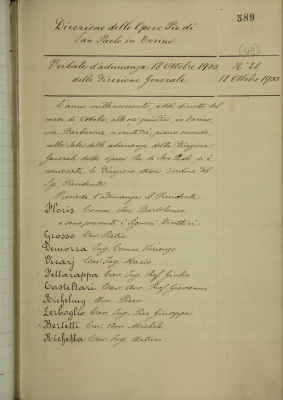 389
Direzione delle Opere Pie di
San Paolo in Torino
(43)
Verbale d'adunanza 18 Ottobre 1900
della Direzione Generale
N.° 28
18 Ottobre 1900
L'anno millenovecento, addì diciotto del
mese di Ottobre alle ore quindici, in Torino,
via Barbaroux, n. venti tre, piano secondo,
nella Sala delle adunanze della Direzione
Generale delle Opere Pie di San Paolo, si è
convocata la Direzione stessa d'ordine del
Sig. Presidente.
Presiede l'adunanza il Presidente
Floris Comm. Avv. Bartolomeo,
e sono presenti i Signori Direttori:
Grosso Cav. Pietro
Demorra Ing. Comm. Vincenzo
Virarj Cav. Ing. Mario
Fettarappa Cav. Ing. Prof. Giulio
Castellari Cav. Avv. Prof. Giovanni
Richelmy Avv. Piero
Zerboglio Cav. Ing. Pier Giuseppe
Bertetti Cav. Avv. Michele
Richetta Cav. Ing. Andrea